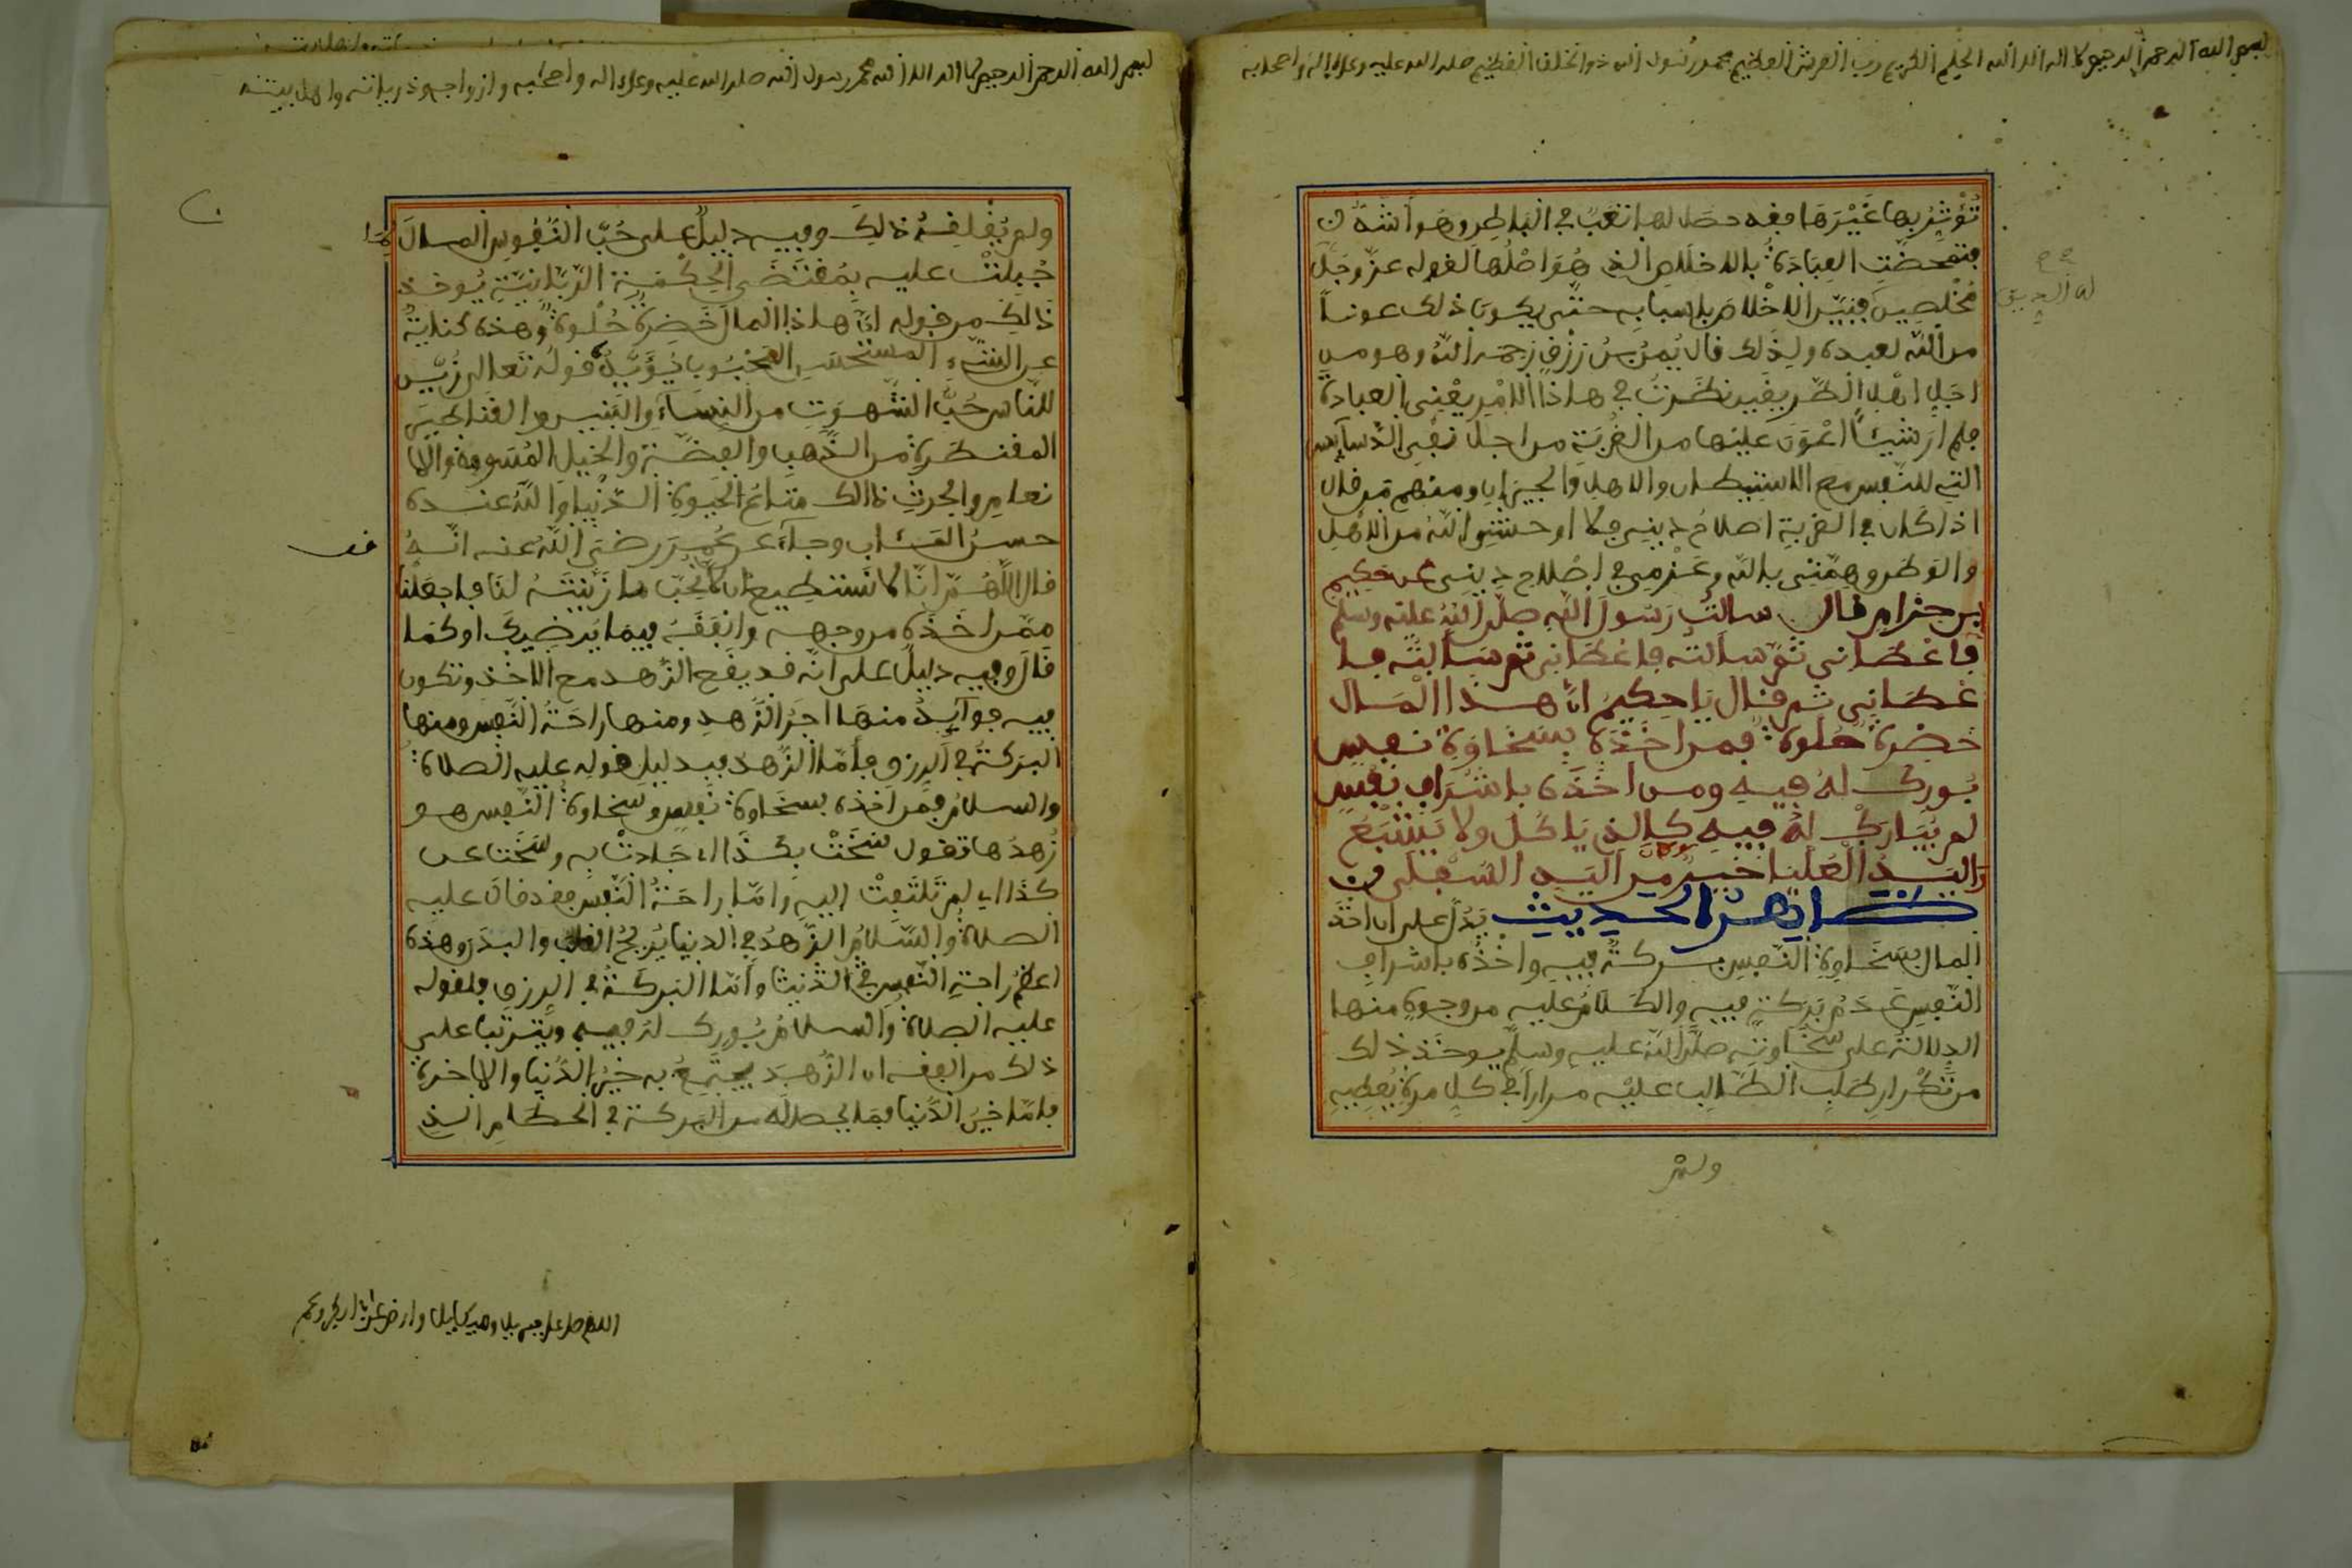 بسم الله الرحمن الرحيم لا اله الا الله الحليم الكريم رب العرش العظيم محمد رسول الله ذو الخلق العظيم صلى الله عليه وعلى اله واصحابه
تُؤْثِرُ بها غَيْرَهَا معه حصل لها تعب في الباطن وهو اشدّ
فتمحضت العِبَادَةُ بالاخلاص الذي هُوَ اصْلُها لقوله عز وجل
مُخْلِصِينَ فبيّن الاخلاص باسبابه حتى يكون ذلك عوناً
من الله لعبده ولذلك قال يُمْنُ بنُ رزق رحمه الله وهو من
اجل اهل الطريق نظرت في هاذا الامر يعْنِي العبادة
فلم ار شيئاً اعْوَنَ عليها من الغُرْبَةِ من اجل نفي الدسايس
التي للنفس مع الاستيطان والاهل والجيران ومنهم من قال
اذا كان في الغربة اصلاح ديني فلا اوحش الله من الاهل
والوطن وهمّتي بالله وعزمي في اصلاح ديني عن حكيم
بن حزام قال سالت رسول الله صلى الله عليه وسلم
فاعطاني ثم سالته فاعطاني ثم سالته فا
عطاني ثم قال يا حكيم ان هذا المال
خضرة حلوة فمن اخذه بسخاوة نفس
بورك له فيه ومن اخذه باشراف نفس
لم يبارك له فيه كالذي ياكل ولا يشبع
واليد العليا خير من اليد السفلى
ظاهر الحديث يدل على ان اخذ
المال بسخاوة النفس بركة فيه واخذه باشراف
النفس عدم بركة فيه والكلام عليه من وجوه منها
الدلالة على سخاوته صلى الله عليه وسلم يوخذ ذلك
من تكرار طلب الطالب عليه مرارا في كل مرة يعطيه
ولم
بسم الله الرحمن الرحيم لا اله الا الله محمد رسول الله صلى الله عليه وعلى اله واصحابه وازواجه وذرياته واهل بيته
ولم يُقْلِقْهُ ذالك وفيه دليل على حُبّ النفوس المال
لِمَا
جُبِلَتْ عليه بمُقتضى الحِكْمَةِ الرّبّانِيّةِ يُوخذ
ذَالِكَ من قوله انّ هاذا المال خَضِرة حُلوة وهذه كناية
عن الشيء المستحسن المحبوب يُؤَيِّدُهُ قوله تعالى زُيّن
للناس حُبّ الشهوات من النساء والبنين والقناطير
المقنطرة من الذهب والفضة والخيل المُسَوّمة والا
نعام والحرث ذالك متاع الحيوة الدنيا والله عنده
حسن المئاب وجاء عن عُمَرَ رضي الله عنه انّه
قال اللّهُمّ انّا لا نستطيع ان لا نحبّ ما زيّنته لنا فاجعلنا
ممّن اخذه من وجهه وانفقه فيما يرضيك او كما
قال وفيه دليل على انه قد يقع الزّهد مع الاخذ وتكون
فيه فوايد منها اجر الزهد ومنها راحة النفس ومنها
البركة في الرزق فامّا الزّهد فبدليل قوله عليه الصلاة
والسلام فمن اخذه بسخاوة نفس وسخاوة النفس هو
زُهدُها تقول سَخَتْ بكذا اي جادت به وسخت عن
كذا اي لم تلتفت اليه وامّا راحة النفس فقد قال عليه
الصلاة والسّلام الزّهد في الدنيا يُريح القلب والبدن وهذه
اعظم راحة النفس في الدنيا وامّا البركة في الرزق فلقوله
عليه الصلاة والسلام بُورك له فيه ويترتب على
ذلك من الفقه ان الزّهد يجتمع به خير الدنيا والاخرة
فامّا خير الدنيا فما يحصل له من البركة في الحطام الذي